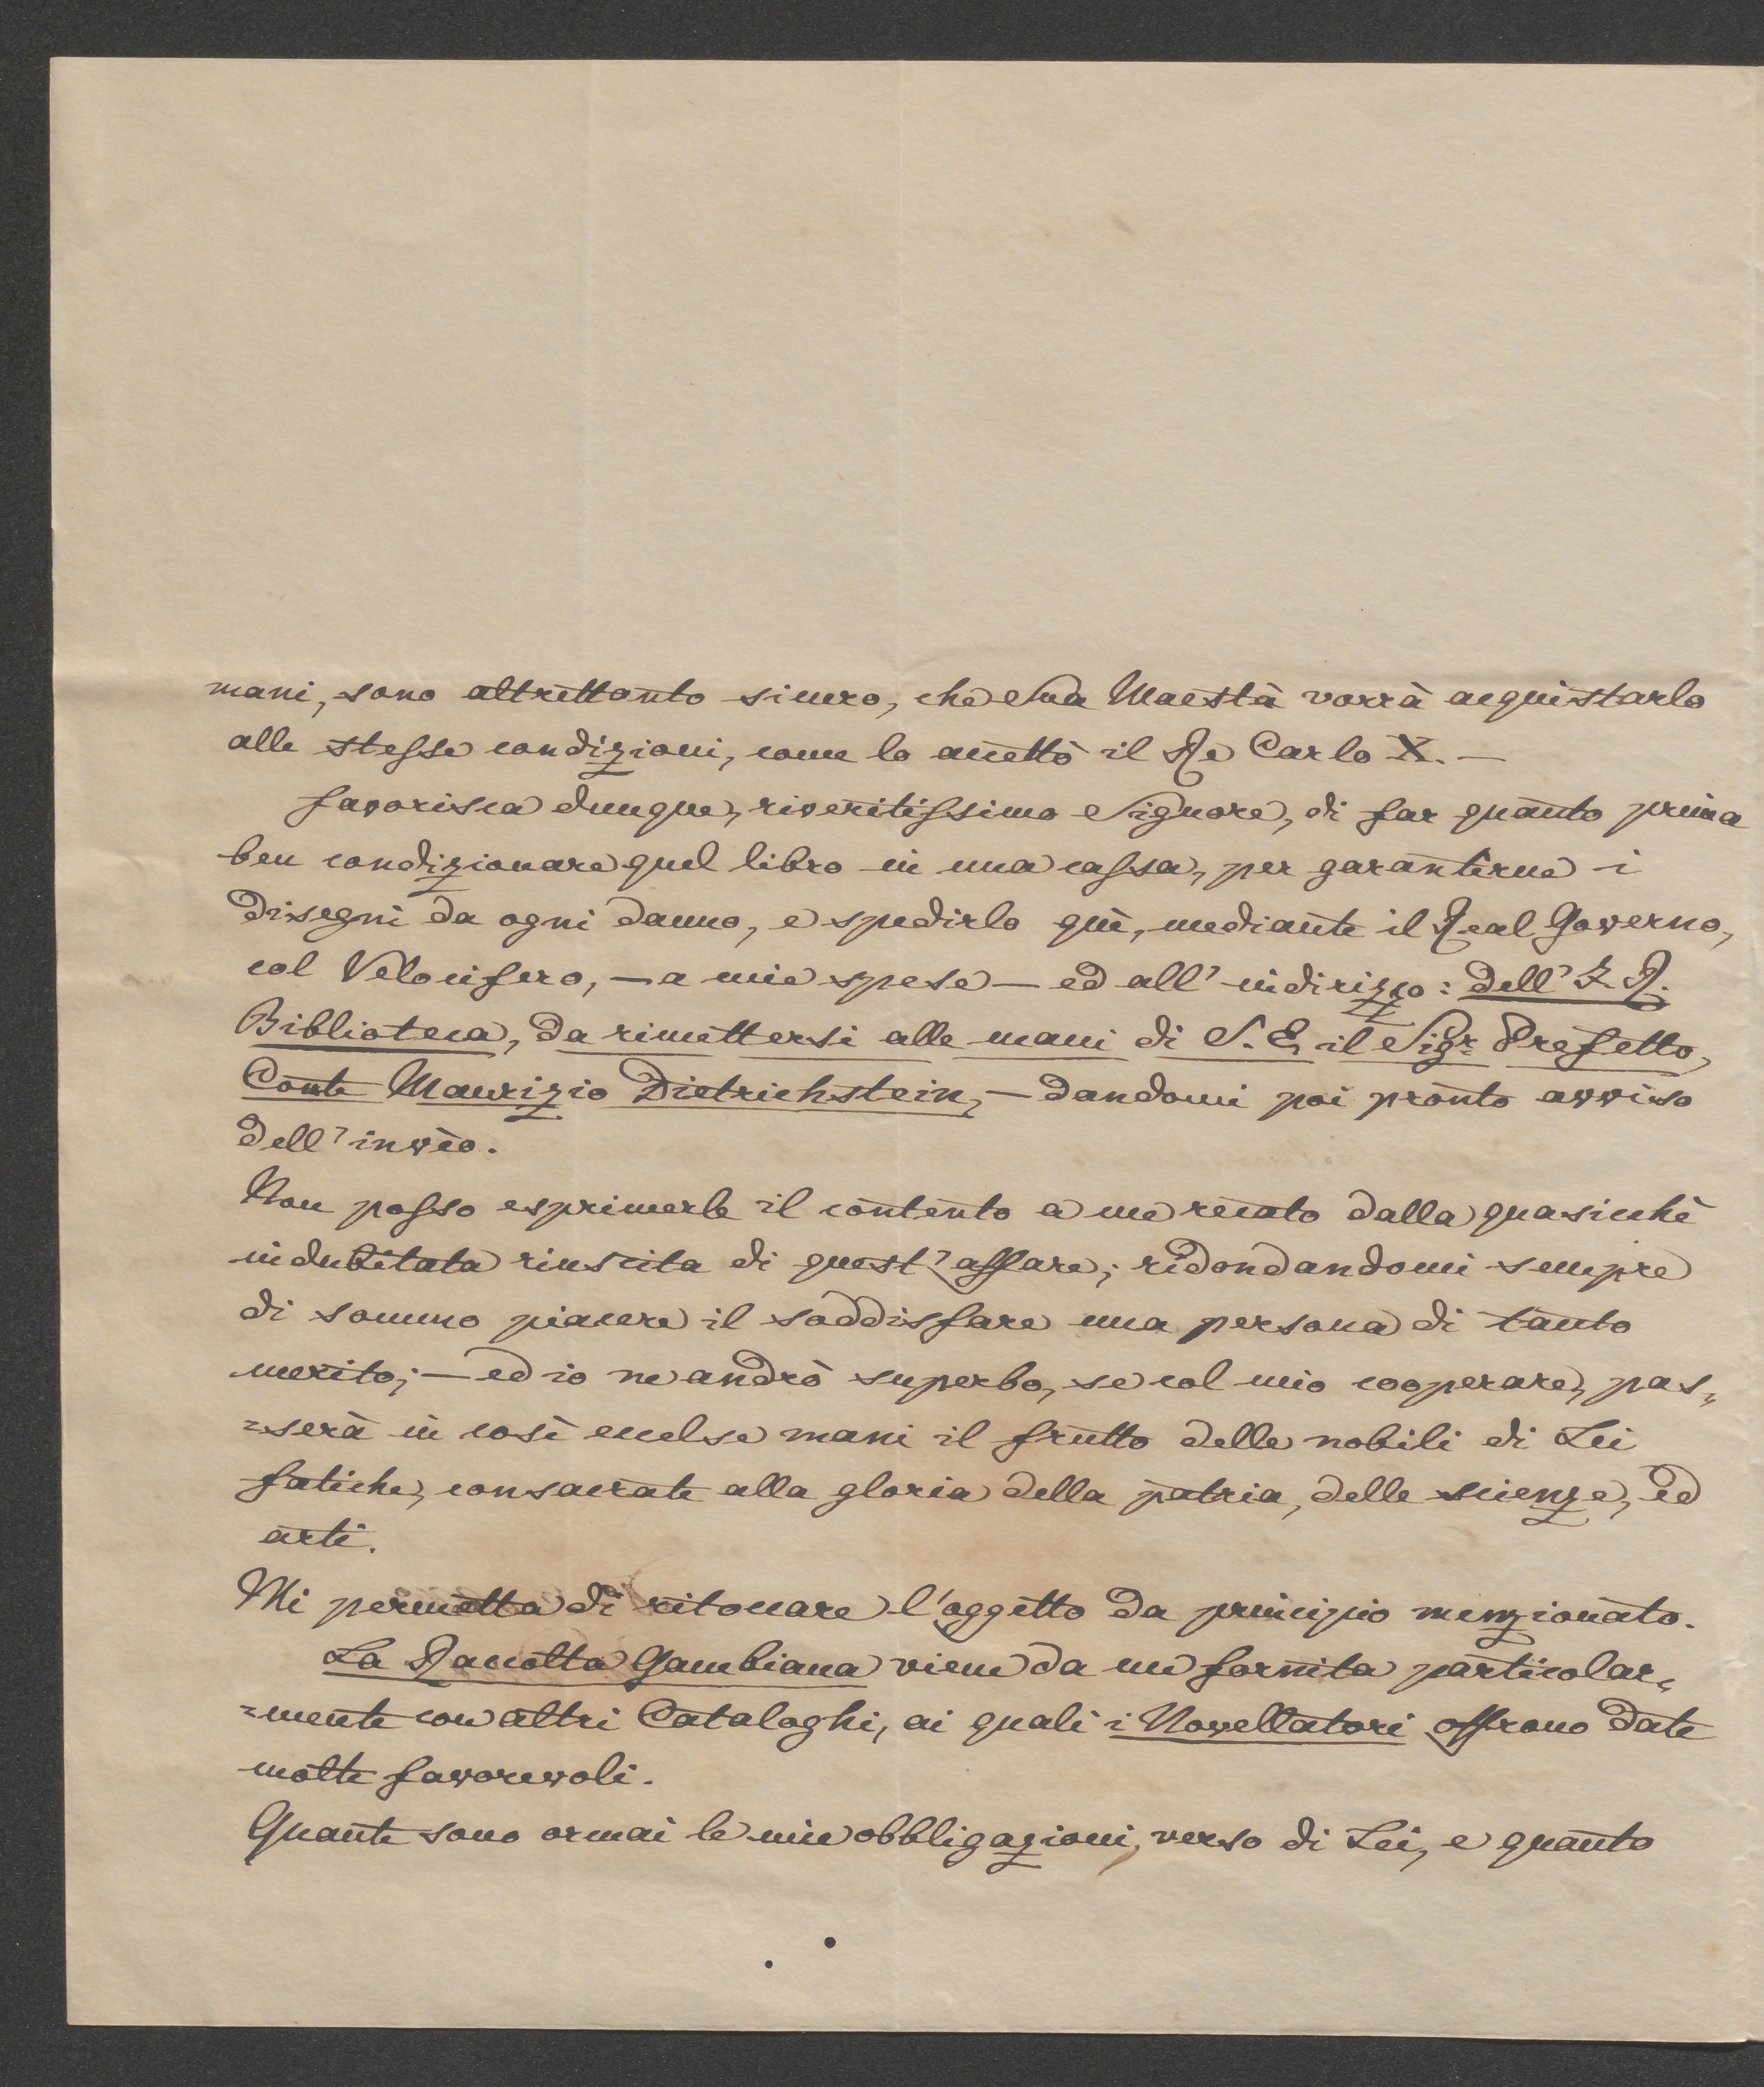 mani, sono altrettanto sicuro, che Sua Maestà vorrà acquistarlo
alle stesse condizioni, come lo accettò il Re Carlo X. —
Favorisca dunque, riveritissimo Signore, di far quanto prima
ben condizionare quel libro in una cassa, per garantirne i
disegni da ogni danno, e spedirlo quì, mediante il Real Governo,
col Velocifero, — a mie spese — ed all' indirizzo: dell' I. R.
Biblioteca, da rimettersi alle mani di S. E. il Sigr. Prefetto,
Conte Maurizio Dietrichstein, — dandomi poi pronto avviso
dell' invìo.
Non posso esprimerle il contento a me recato dalla quasicchè
indubitata riuscita di quest' affare; ridondandomi sempre
di sommo piacere il soddisfare una persona di tanto
merito; — ed io ne andrò superbo, se col mio cooperare, pas„
„serà in così eccelse mani il frutto delle nobili di Lei
fatiche, consacrate alla gloria della patria, delle scienze, ed
arti.
Mi permetta di ritoccare l'oggetto da principio menzionato.
La Raccolta Gambiana viene da me fornita particolar„
„mente con altri Cataloghi, ai quali i Novellatori offrono date
molte favorevoli.
Quante sono ormai le mie obbligazioni, verso di Lei, e quanto